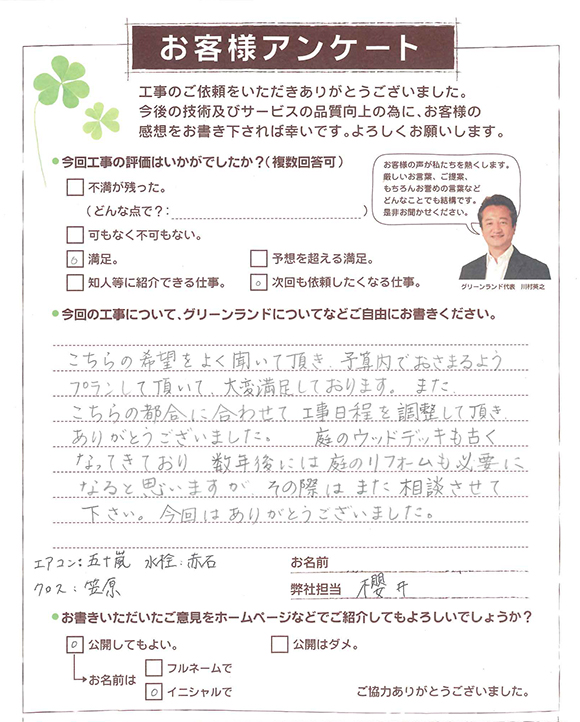 お客様アンケート
工事のご依頼をいただきありがとうございました。
今後の技術及びサービスの品質向上の為に、お客様の
感想をお書き下されば幸いです。よろしくお願いします。
●今回工事の評価はいかがでしたか？（複数回答可）
不満が残った。
（どんな点で？：　）
可もなく不可もない。
○ 満足。
予想を超える満足。
知人等に紹介できる仕事。
○ 次回も依頼したくなる仕事。
お客様の声が私たちを熱くします。
厳しいお言葉、ご提案、
もちろんお誉めの言葉など
どんなことでも結構です。
是非お聞かせください。
グリーンランド代表 川村英之
●今回の工事について、グリーンランドについてなどご自由にお書きください。
こちらの希望をよく聞いて頂き、予算内でおさまるよう
プランして頂いて、大変満足しております。また、
こちらの都合に合わせて工事日程を調整して頂き、
ありがとうございました。 庭のウッドデッキも古く
なってきており 数年後には庭のリフォームも必要に
なると思いますが その際は また 相談させて
下さい。今回はありがとうございました。
エアコン：五十嵐 水栓：赤石
クロス：笠原
お名前
弊社担当 櫻井
●お書きいただいたご意見をホームページなどでご紹介してもよろしいでしょうか？
○ 公開してもよい。
公開はダメ。
→お名前は
フルネームで
○ イニシャルで
ご協力ありがとうございました。